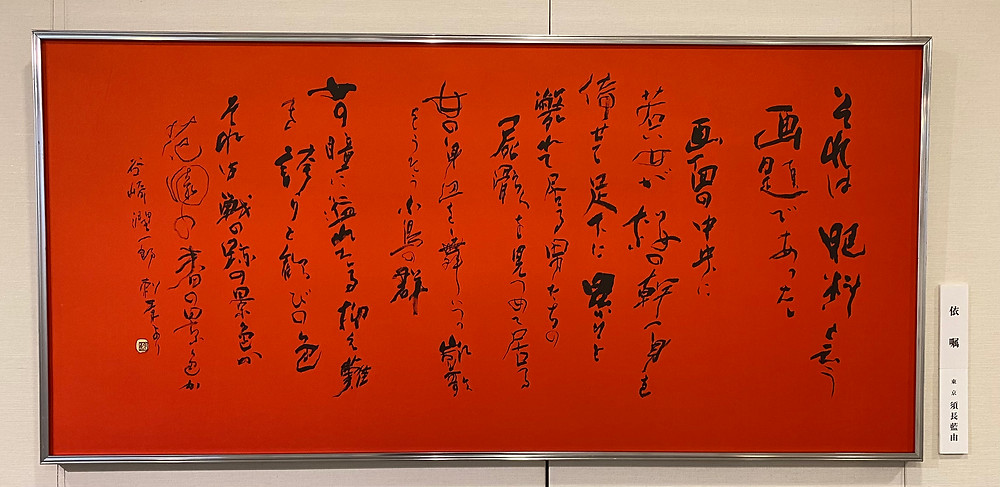 それは肥料と云う
画題であった
画面の中央に
若い女が桜の幹へ身を
倚せて足下に累々と
斃れて居る男たちの
屍骸を見つめて居る
女の身辺を舞いつつ凱歌
をうたう小鳥の群
女の瞳に溢れたる抑え難
き誇りと歓びの色
それは戦の跡の景色か
花園の春の景色か
谷崎潤一郎 刺青より
依嘱
東京